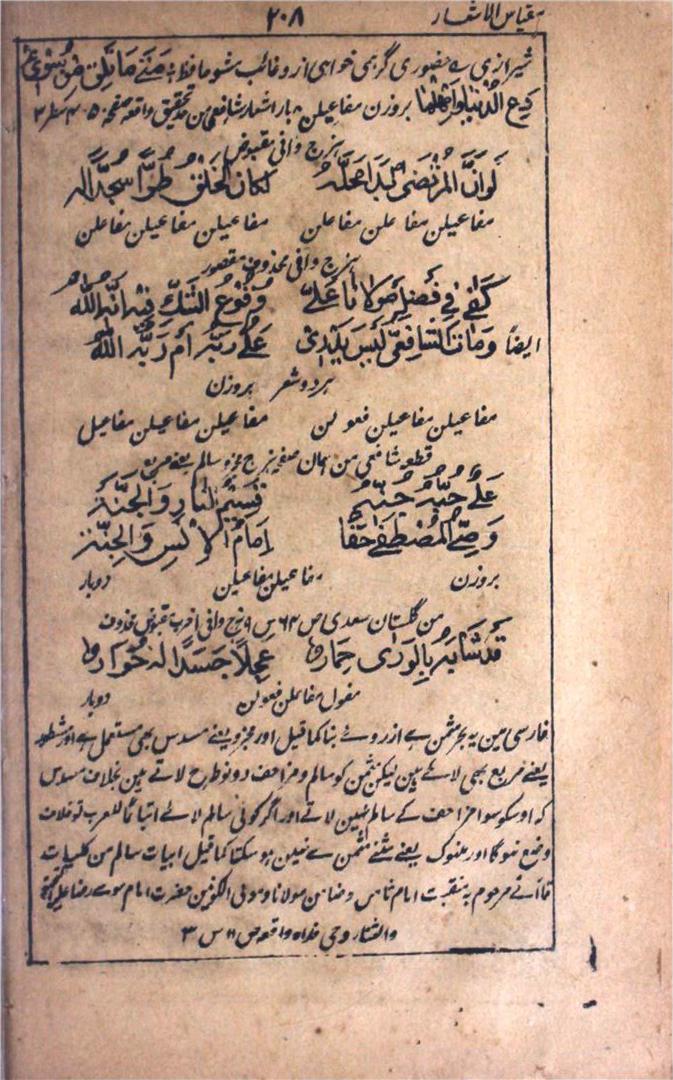 مقیاس الاشعار ۲۰۸
شیرازی ؎ حضوری گرہمی خواہی ازو غائب مشو حافظ ؛ مَتٰی مَا تَلْقَ مَنْ تَهْوٰی
دَعِ الدُّنْیَا وَاَهْمِلْهَا بروزن مفاعیلن ... بار اشعار شافعی من ... تحقیق واقعہ صفحہ ۳۰۵ سطر ۲
ہزج وافی مقبوض
لَوْ اَنَّ الْمُرْتَضٰی اَبْدَا مَحَلَّهٗ لَکَانَ الْخَلْقُ طُرًّا سُجَّدًا لَهٗ
مفاعیلن مفاعلن مفاعلن مفاعیلن مفاعیلن مفاعلن
ہزج وافی محذوف مقصور
کَفٰی فِیْ فَضْلِ مَوْلَانَا عَلِیٍّ وَقُوْعُ الشَّکِّ فِیْهِ اَنَّهُ اللّٰهُ
ایضاً وَمَاتَ الشَّافِعِیُّ لَیْسَ یَدْرِیْ عَلِیٌّ رَبُّهٗ اَمْ رَبُّهُ اللّٰهُ
ہردو شعر بروزن
مفاعیلن مفاعیلن فعولن مفاعیلن مفاعیلن مفاعیل
قطعہ شافعی من ... صفحہ ہزج مجزو سالم یعنے مربع
عَلِیٌّ حُبُّهٗ جُنَّهٗ قَسِیْمُ النَّارِ وَالْجَنَّهٗ
وَصِیُّ الْمُصْطَفٰی حَقًّا اِمَامُ الْاِنْسِ وَالْجِنَّهٗ
بروزن مفاعیلن مفاعیلن دوبار
من گلستان سعدی ص ۶۴ س ۹ ہزج وافی اخرب مقبوض محذوف
قَدْ شَابَهَ بِالْوَرٰی حِمَارٌ عِجْلًا جَسَدًا لَهٗ خُوَارٌ
مفعول مفاعلن فعولن دوبار
فارسی مین یہ بحر مثمن ہے ازروئے بنا کما قیل اور مجزو یعنے مسدس بھی مستعمل ہے اور مشطور
یعنے مربع بھی لائے ہین لیکن مثمن کو سالم و مزاحف دونو طرح لاتے ہین بخلاف مسدس
کہ اوسکو سوا مزاحف کے سالم نہین لاتے اور اگر کوئی سالم لائے اتباعًا للعرب تو خلاف
وضع نہوگا اور منہوک یعنے مثنے مثمن سے نہین ہوسکتا کما قیل ابیات سالم من کلیات
قاآنے مرحوم بہ منقبت امام ثامن وضامن مولانا ومولی الکونین حضرت امام موسے رضا علیہ التحیۃ
والثنا روحی فداہ واقعہ ص ۱۱ س ۳